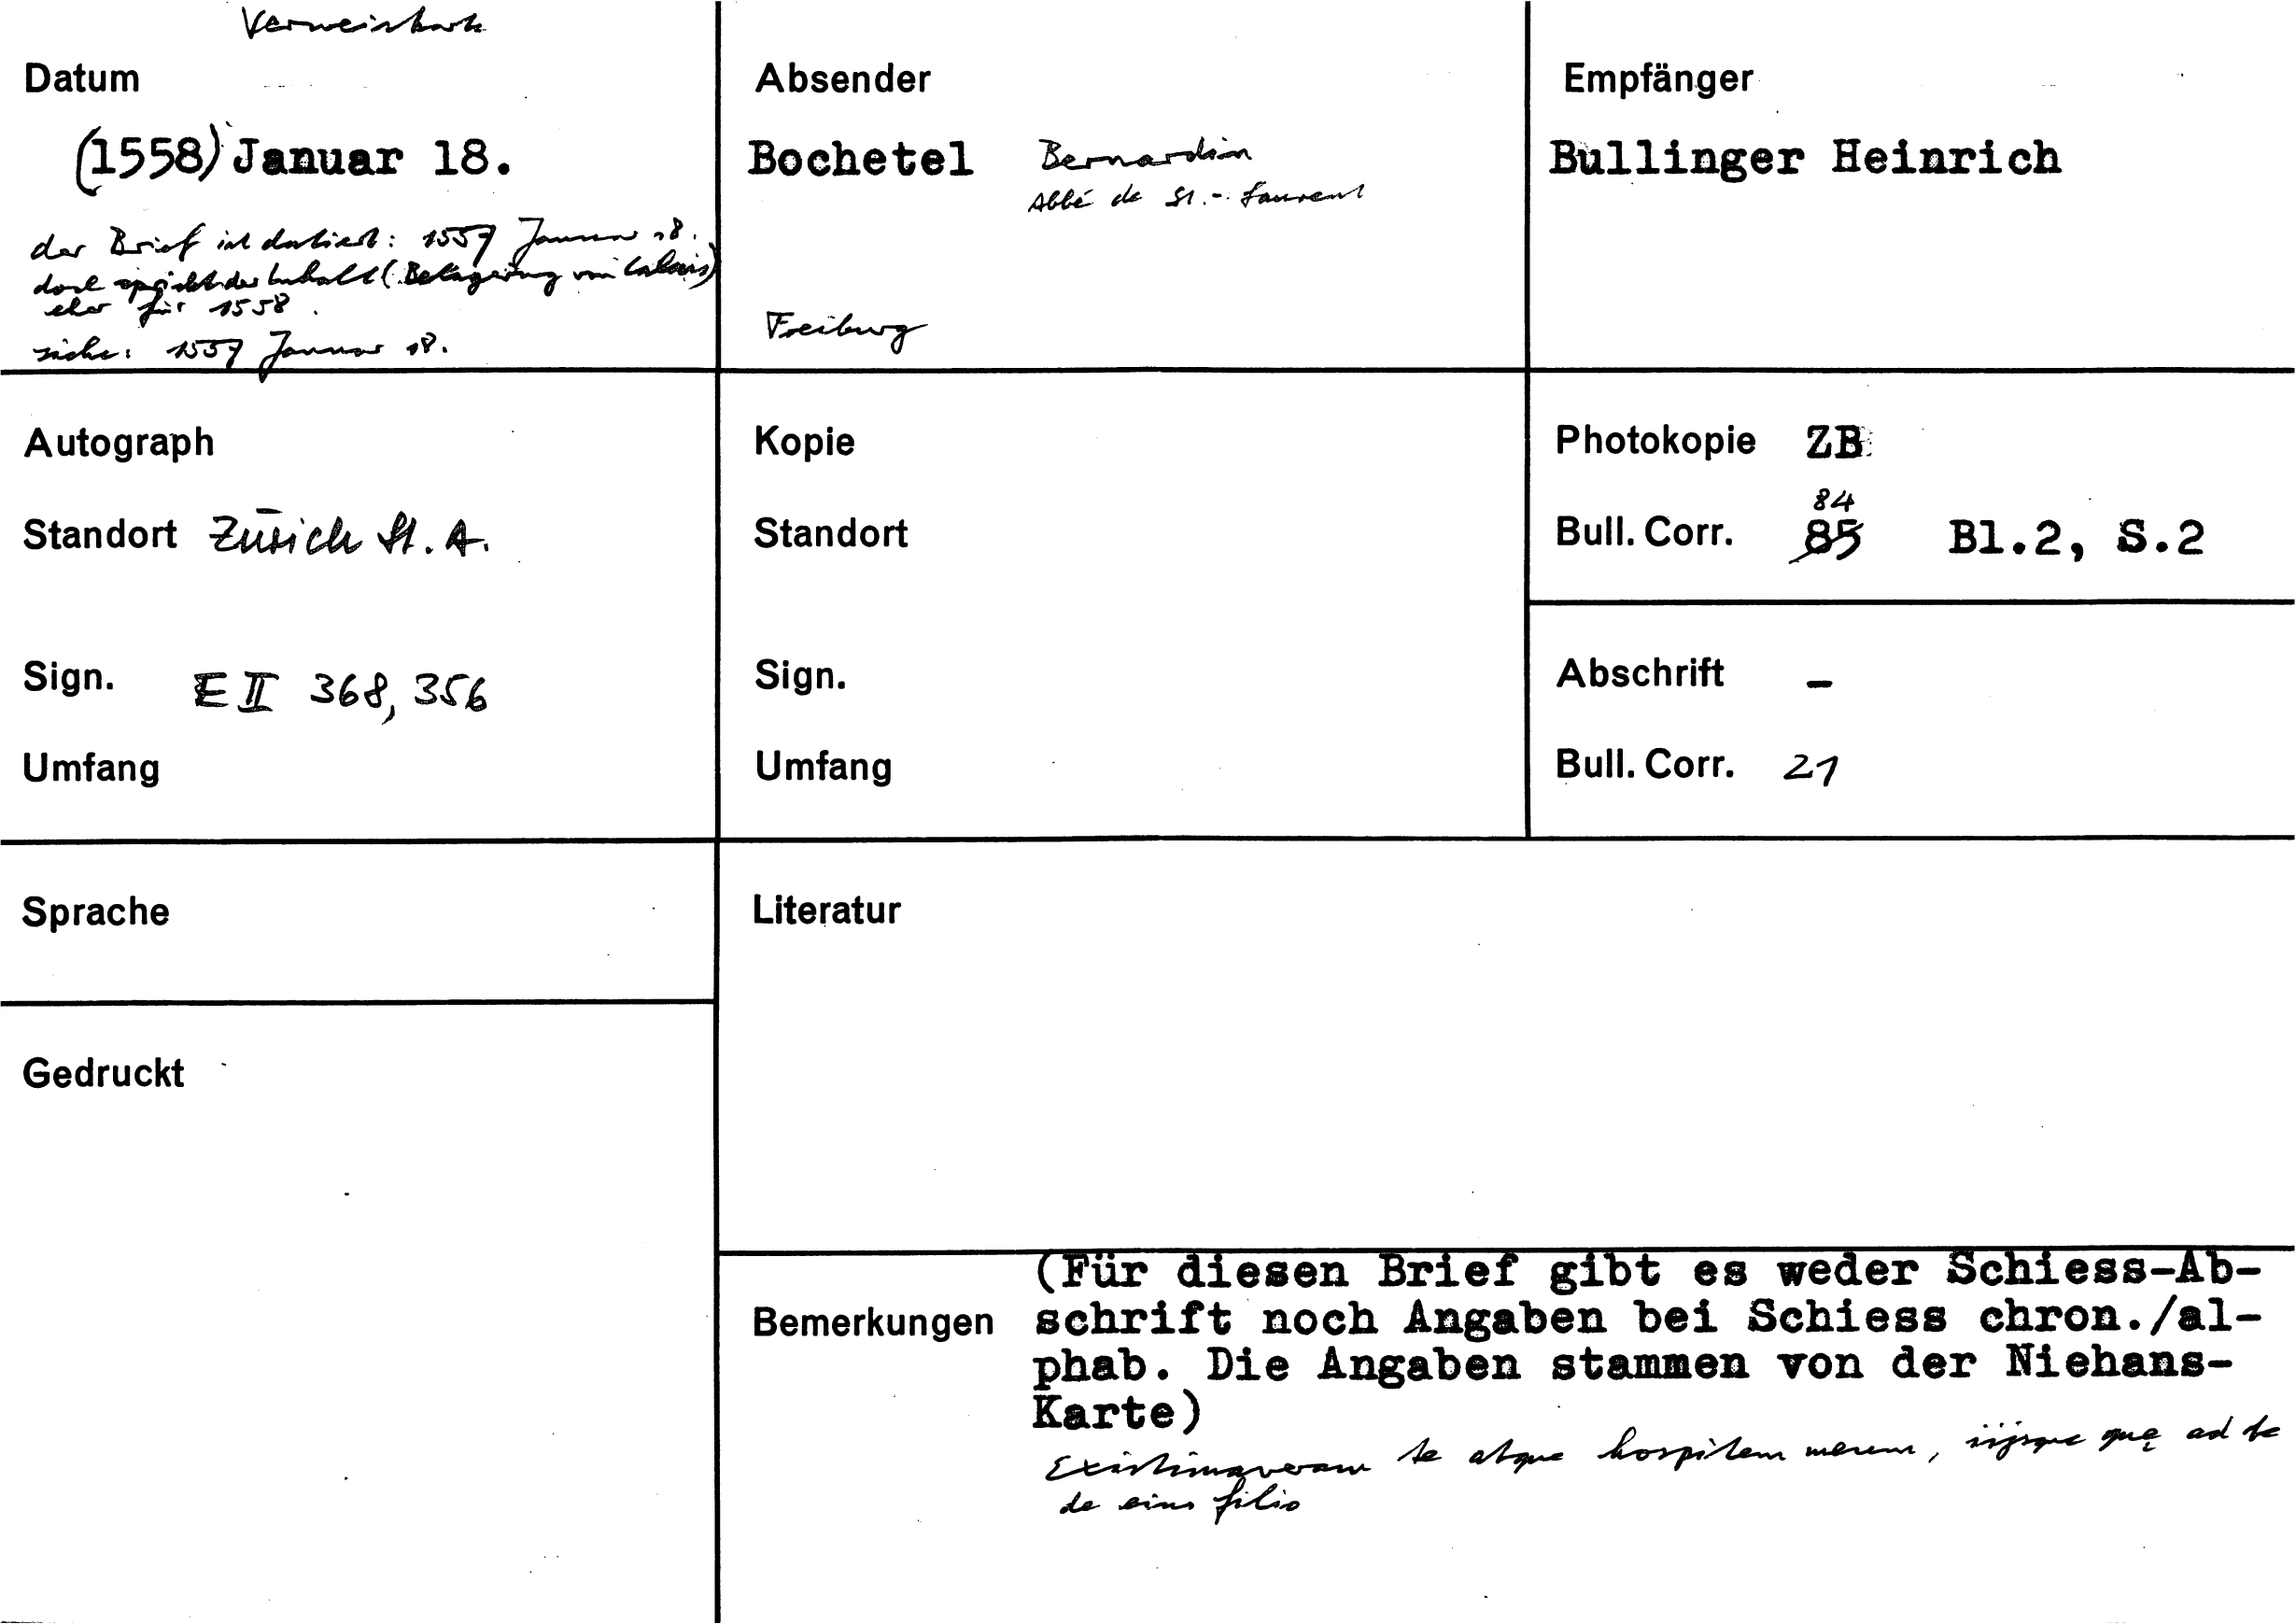 Verweiskarte
Datum
(1558) Januar 18.
der Brief ist datiert: 1557 Januar 18.
doch spricht der Inhalt (Belagerung von Calais)
eher für 1558.
siehe: 1557 Januar 18.
Absender
Bochetel Bernardin
Abbé de St.-Laurent
Freiburg
Empfänger
Bullinger Heinrich
Autograph
Standort Zürich St. A.
Sign. E II 368, 356
Umfang
Kopie
Standort
Sign.
Umfang
Photokopie ZB
84
Bull. Corr. 85 Bl.2, S.2
Abschrift -
Bull. Corr. 21
Sprache
Gedruckt
Literatur
Bemerkungen
(Für diesen Brief gibt es weder Schiess-Ab-
schrift noch Angaben bei Schiess chron./al-
phab. Die Angaben stammen von der Niehans-
Karte)
Existimaveram te atque hospitem meum, iijsque quę ad te
de eius filio